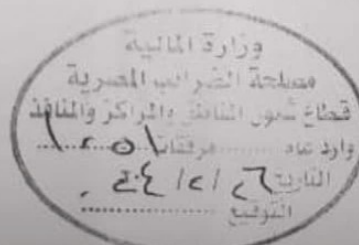 وزارة المالية
مصلحة الضرائب المصرية
قطاع شئون المناطق والمراكز والمنافذ
وارد ........ مرفقات ........
التاريخ ٢٦ / ٢ /
التوقيع ................